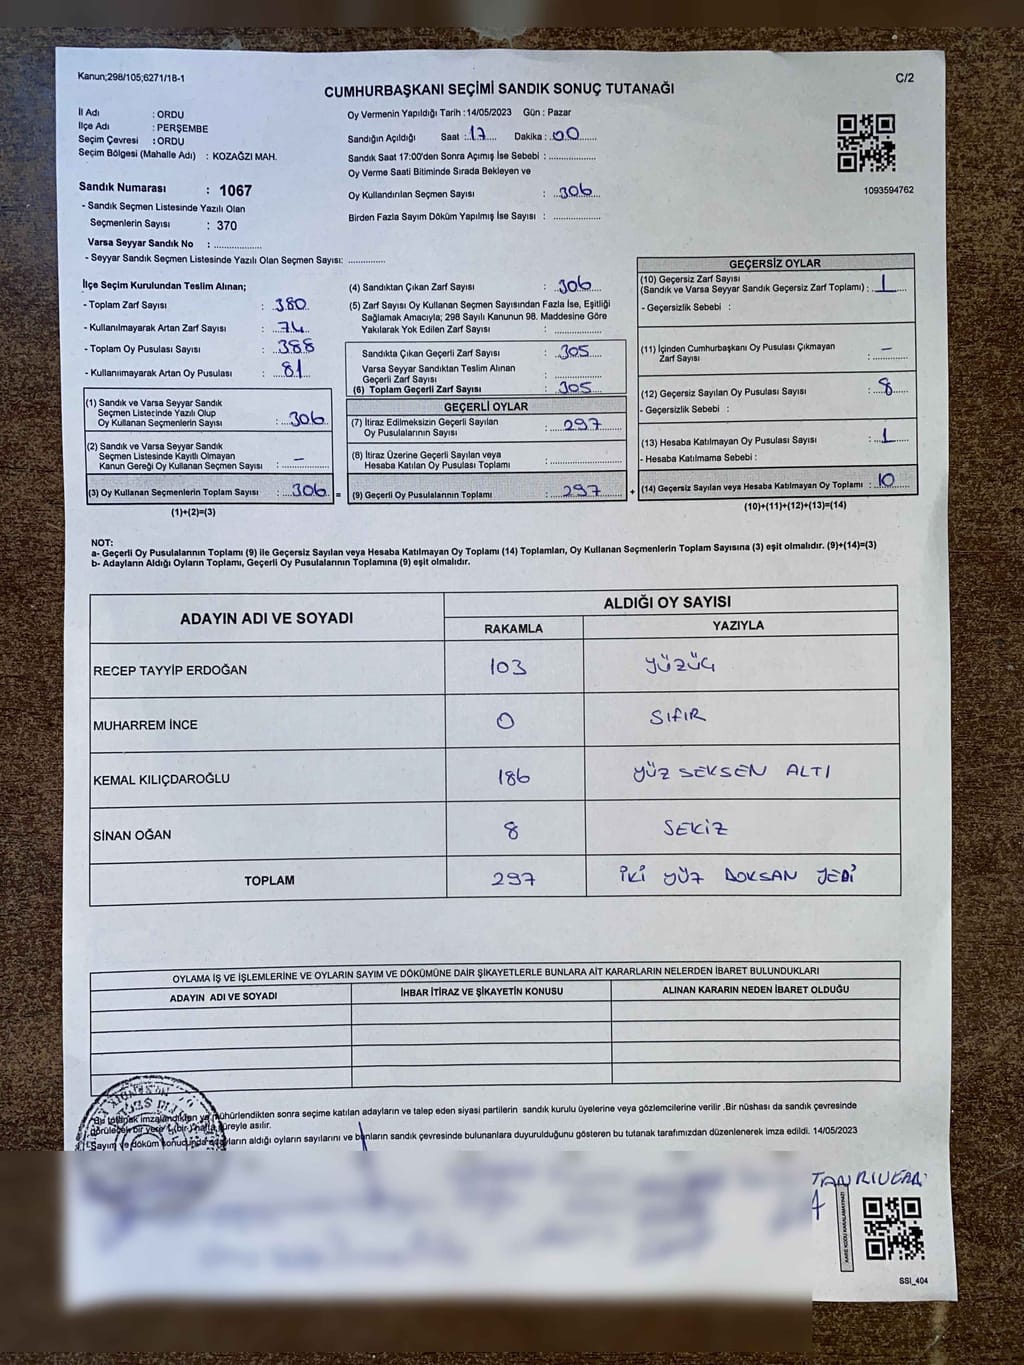 Kanun;298/105;6271/18-1
C/2
CUMHURBAŞKANI SEÇİMİ SANDIK SONUÇ TUTANAĞI
İl Adı : ORDU
İlçe Adı : PERŞEMBE
Seçim Çevresi : ORDU
Seçim Bölgesi (Mahalle Adı) : KOZAĞZI MAH.
Sandık Numarası : 1067
- Sandık Seçmen Listesinde Yazılı Olan
Seçmenlerin Sayısı : 370
Varsa Seyyar Sandık No : ..................
- Seyyar Sandık Seçmen Listesinde Yazılı Olan Seçmen Sayısı: .............
Oy Vermenin Yapıldığı Tarih : 14/05/2023 Gün : Pazar
Sandığın Açıldığı Saat : 17 Dakika : 00
Sandık Saat 17:00'den Sonra Açımış İse Sebebi : ................
Oy Verme Saati Bitiminde Sırada Bekleyen ve
Oy Kullandırılan Seçmen Sayısı : 306
Birden Fazla Sayım Döküm Yapılmış İse Sayısı : ................
1093594762
İlçe Seçim Kurulundan Teslim Alınan;
- Toplam Zarf Sayısı : 380
- Kullanılmayarak Artan Zarf Sayısı : 74
- Toplam Oy Pusulası Sayısı : 388
- Kullanılmayarak Artan Oy Pusulası : 81
(1) Sandık ve Varsa Seyyar Sandık
Seçmen Listecinde Yazılı Olup
Oy Kullanan Seçmenlerin Sayısı : 306
(2) Sandık ve Varsa Seyyar Sandık
Seçmen Listesinde Kayıtlı Olmayan
Kanun Gereği Oy Kullanan Seçmen Sayısı : –
(3) Oy Kullanan Seçmenlerin Toplam Sayısı : 306 =
(1)+(2)=(3)
(4) Sandıktan Çıkan Zarf Sayısı : 306
(5) Zarf Sayısı Oy Kullanan Seçmen Sayısından Fazla İse, Eşitliği
Sağlamak Amacıyla; 298 Sayılı Kanunun 98. Maddesine Göre
Yakılarak Yok Edilen Zarf Sayısı : ................
Sandıkta Çıkan Geçerli Zarf Sayısı : 305
Varsa Seyyar Sandıktan Teslim Alınan
Geçerli Zarf Sayısı : ................
(6) Toplam Geçerli Zarf Sayısı : 305
GEÇERLİ OYLAR
(7) İtiraz Edilmeksizin Geçerli Sayılan
Oy Pusulalarının Sayısı : 297
(8) İtiraz Üzerine Geçerli Sayılan veya
Hesaba Katılan Oy Pusulası Toplamı : ................
(9) Geçerli Oy Pusulalarının Toplamı : 297 +
GEÇERSİZ OYLAR
(10) Geçersiz Zarf Sayısı
(Sandık ve Varsa Seyyar Sandık Geçersiz Zarf Toplamı) : 1
- Geçersizlik Sebebi :
(11) İçinden Cumhurbaşkanı Oy Pusulası Çıkmayan
Zarf Sayısı : –
(12) Geçersiz Sayılan Oy Pusulası Sayısı : 8
- Geçersizlik Sebebi :
(13) Hesaba Katılmayan Oy Pusulası Sayısı : 1
- Hesaba Katılmama Sebebi :
(14) Geçersiz Sayılan veya Hesaba Katılmayan Oy Toplamı : 10
(10)+(11)+(12)+(13)=(14)
NOT:
a- Geçerli Oy Pusulalarının Toplamı (9) ile Geçersiz Sayılan veya Hesaba Katılmayan Oy Toplamı (14) Toplamları, Oy Kullanan Seçmenlerin Toplam Sayısına (3) eşit olmalıdır. (9)+(14)=(3)
b- Adayların Aldığı Oyların Toplamı, Geçerli Oy Pusulalarının Toplamına (9) eşit olmalıdır.
ADAYIN ADI VE SOYADI ALDIĞI OY SAYISI
RAKAMLA YAZIYLA
RECEP TAYYİP ERDOĞAN 103 YÜZÜÇ
MUHARREM İNCE 0 SIFIR
KEMAL KILIÇDAROĞLU 186 YÜZ SEKSEN ALTI
SİNAN OĞAN 8 SEKİZ
TOPLAM 297 İKİ YÜZ DOKSAN YEDİ
OYLAMA İŞ VE İŞLEMLERİNE VE OYLARIN SAYIM VE DÖKÜMÜNE DAİR ŞİKAYETLERLE BUNLARA AİT KARARLARIN NELERDEN İBARET BULUNDUKLARI
ADAYIN ADI VE SOYADI İHBAR İTİRAZ VE ŞİKAYETİN KONUSU ALINAN KARARIN NEDEN İBARET OLDUĞU
Bu tutanak imzalandıktan ve mühürlendikten sonra seçime katılan adayların ve talep eden siyasi partilerin sandık kurulu üyelerine veya gözlemcilerine verilir .Bir nüshası da sandık çevresinde
görülecek bir yere 1 (bir) hafta süreyle asılır.
Sayım ve döküm sonucunda adayların aldığı oyların sayılarını ve bunların sandık çevresinde bulunanlara duyurulduğunu gösteren bu tutanak tarafımızdan düzenlenerek imza edildi. 14/05/2023
TANRIVERDİ
SSI_404